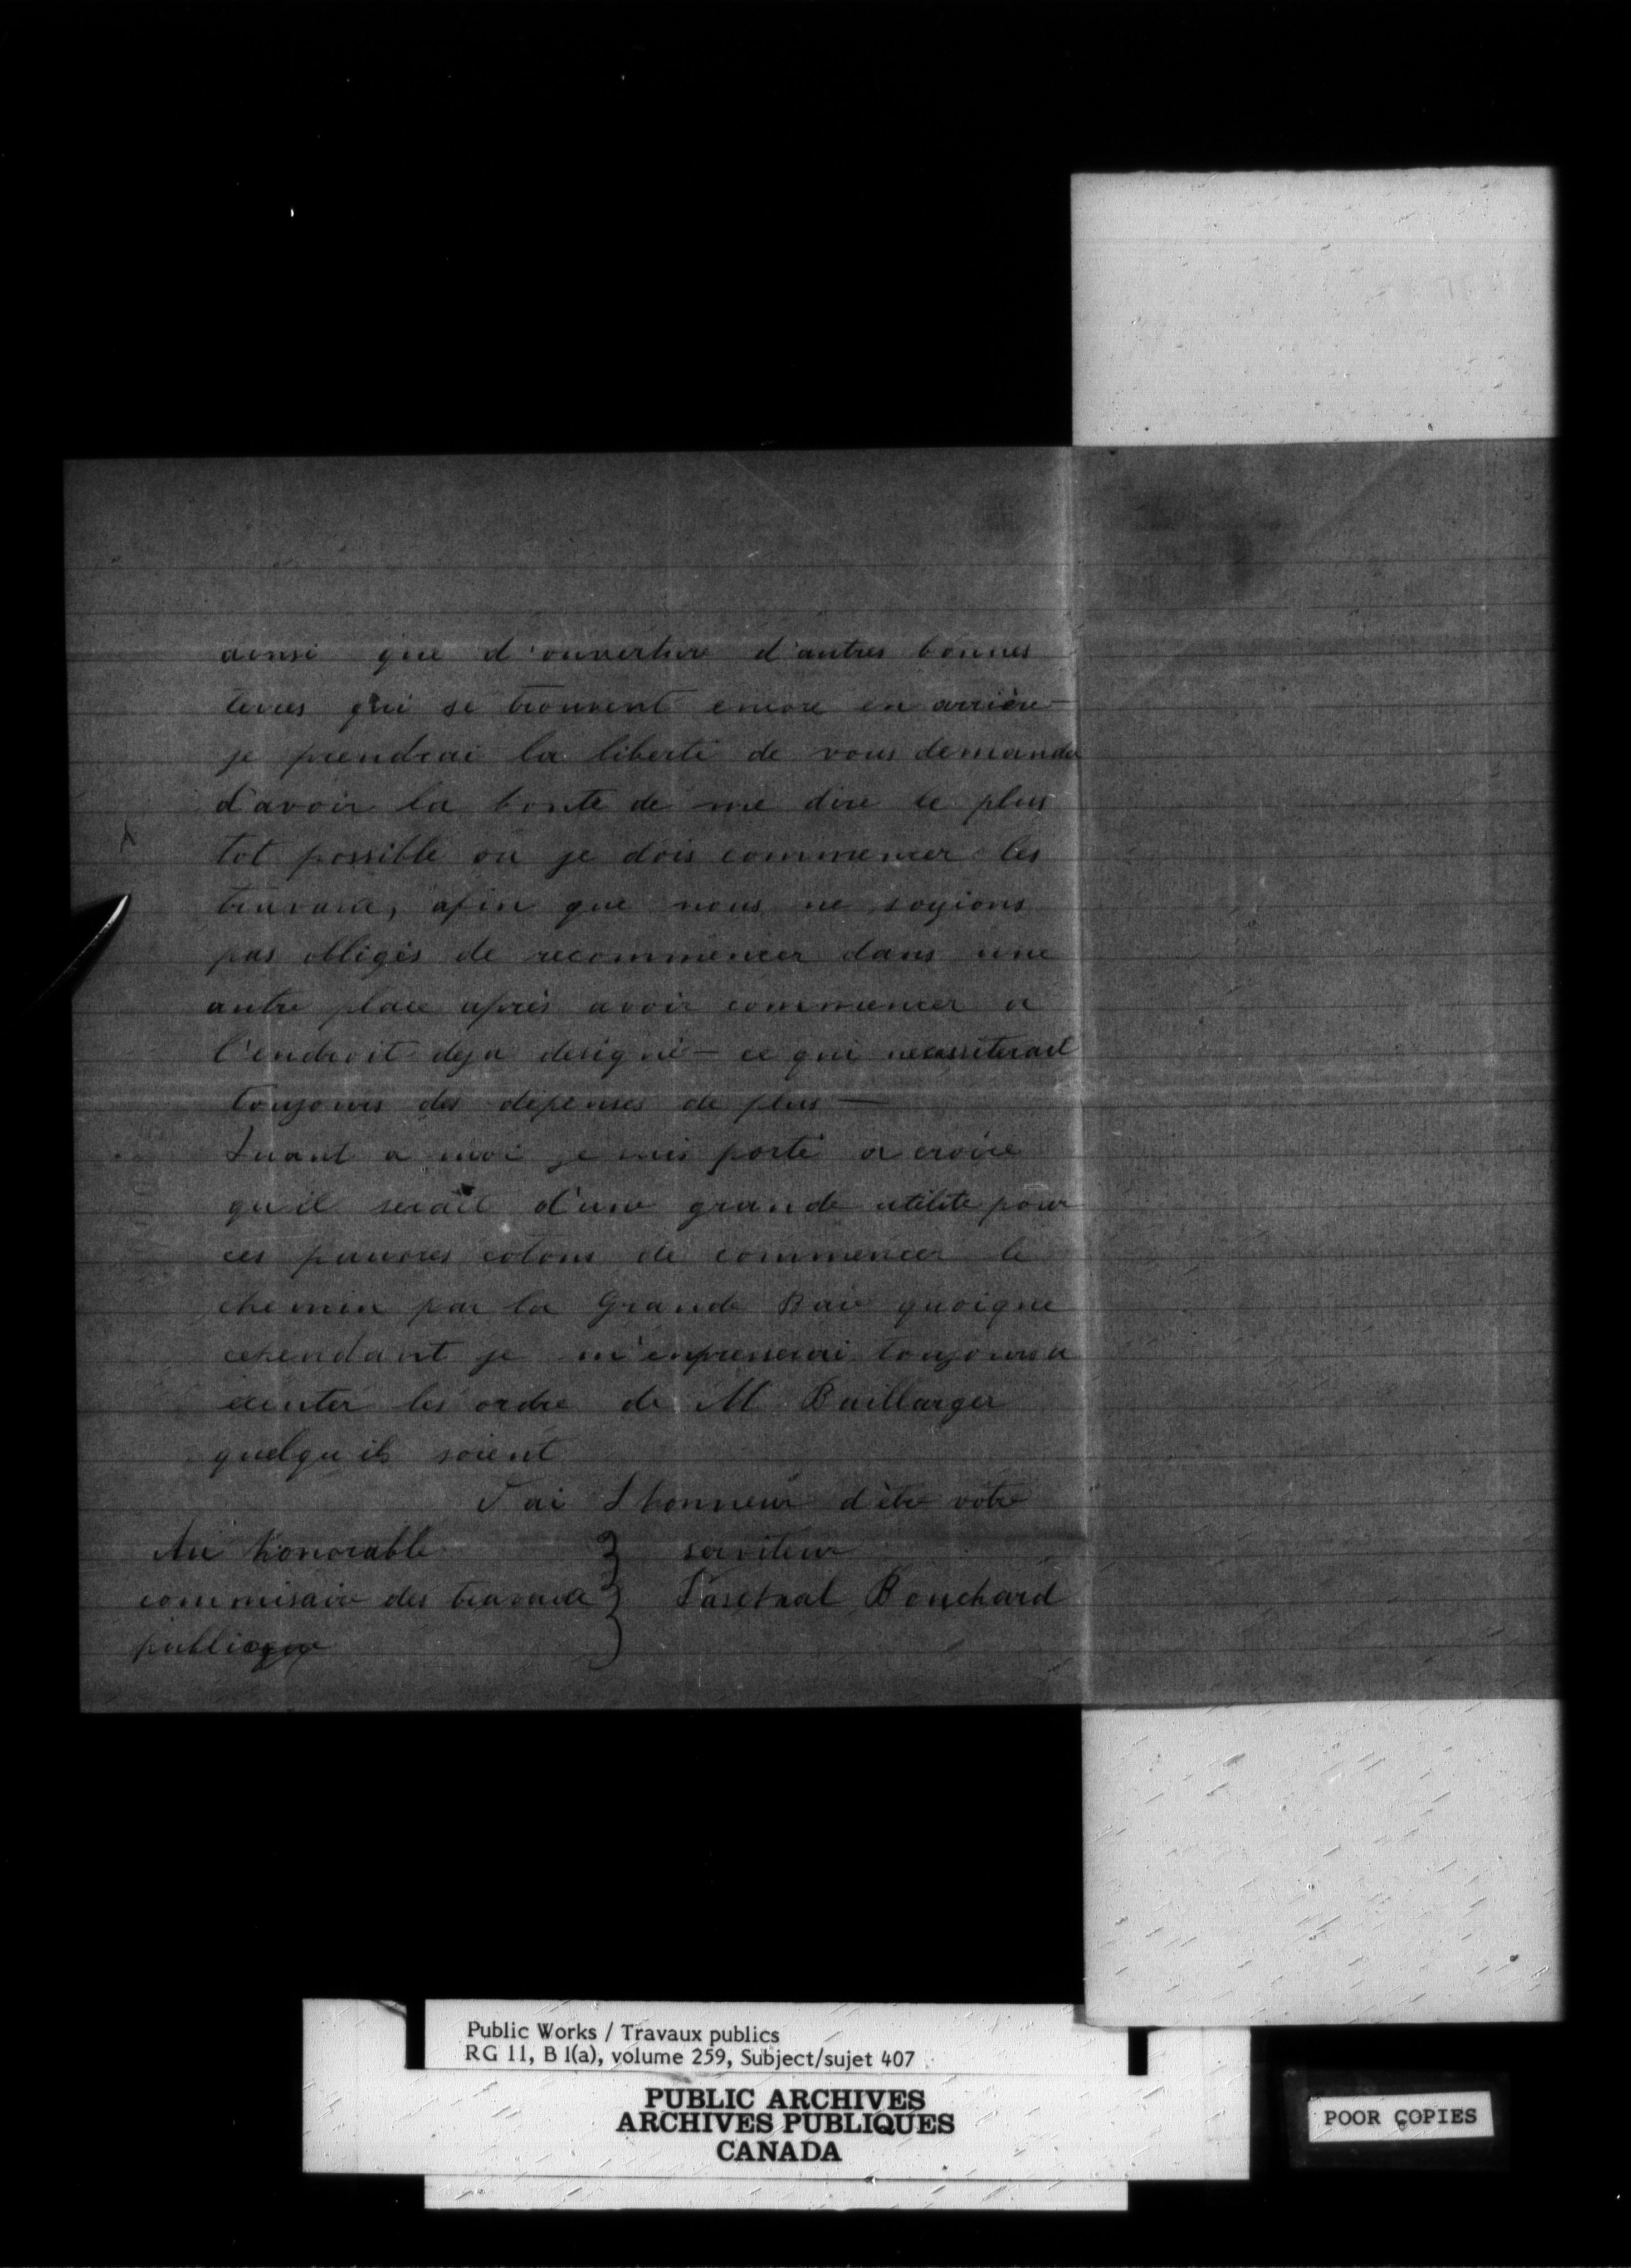 ainsi que d'ouverture d'autres bonnes
terres qui se trouvent encore en arrière —
je prendrai la liberté de vous demander
d'avoir la bonté de me dire le plus
tot possible ou je dois commencer les
travaux, afin que nous ne soyions
pas obligés de recommencer dans une
autre place après avoir commencer a
l'endroit deja designé — ce qui necessiterait
toujours des dépenses de plus —
Quant a moi je suis porté a croire
qu'il serait d'une grande utilité pour
ces pauvres colons de commencer le
chemin par la Grande Baie quoique
cependant je m'enpresserai toujours a
executer les ordre de M Baillarger
quelqu'ils soient
J'ai L'honneur d'être votre
Au honorable serviteur
commisaire des travaux Paschal Bouchard
publique
Public Works / Travaux publics
RG 11, B 1(a), volume 259, Subject/sujet 407
PUBLIC ARCHIVES
ARCHIVES PUBLIQUES
CANADA
POOR COPIES